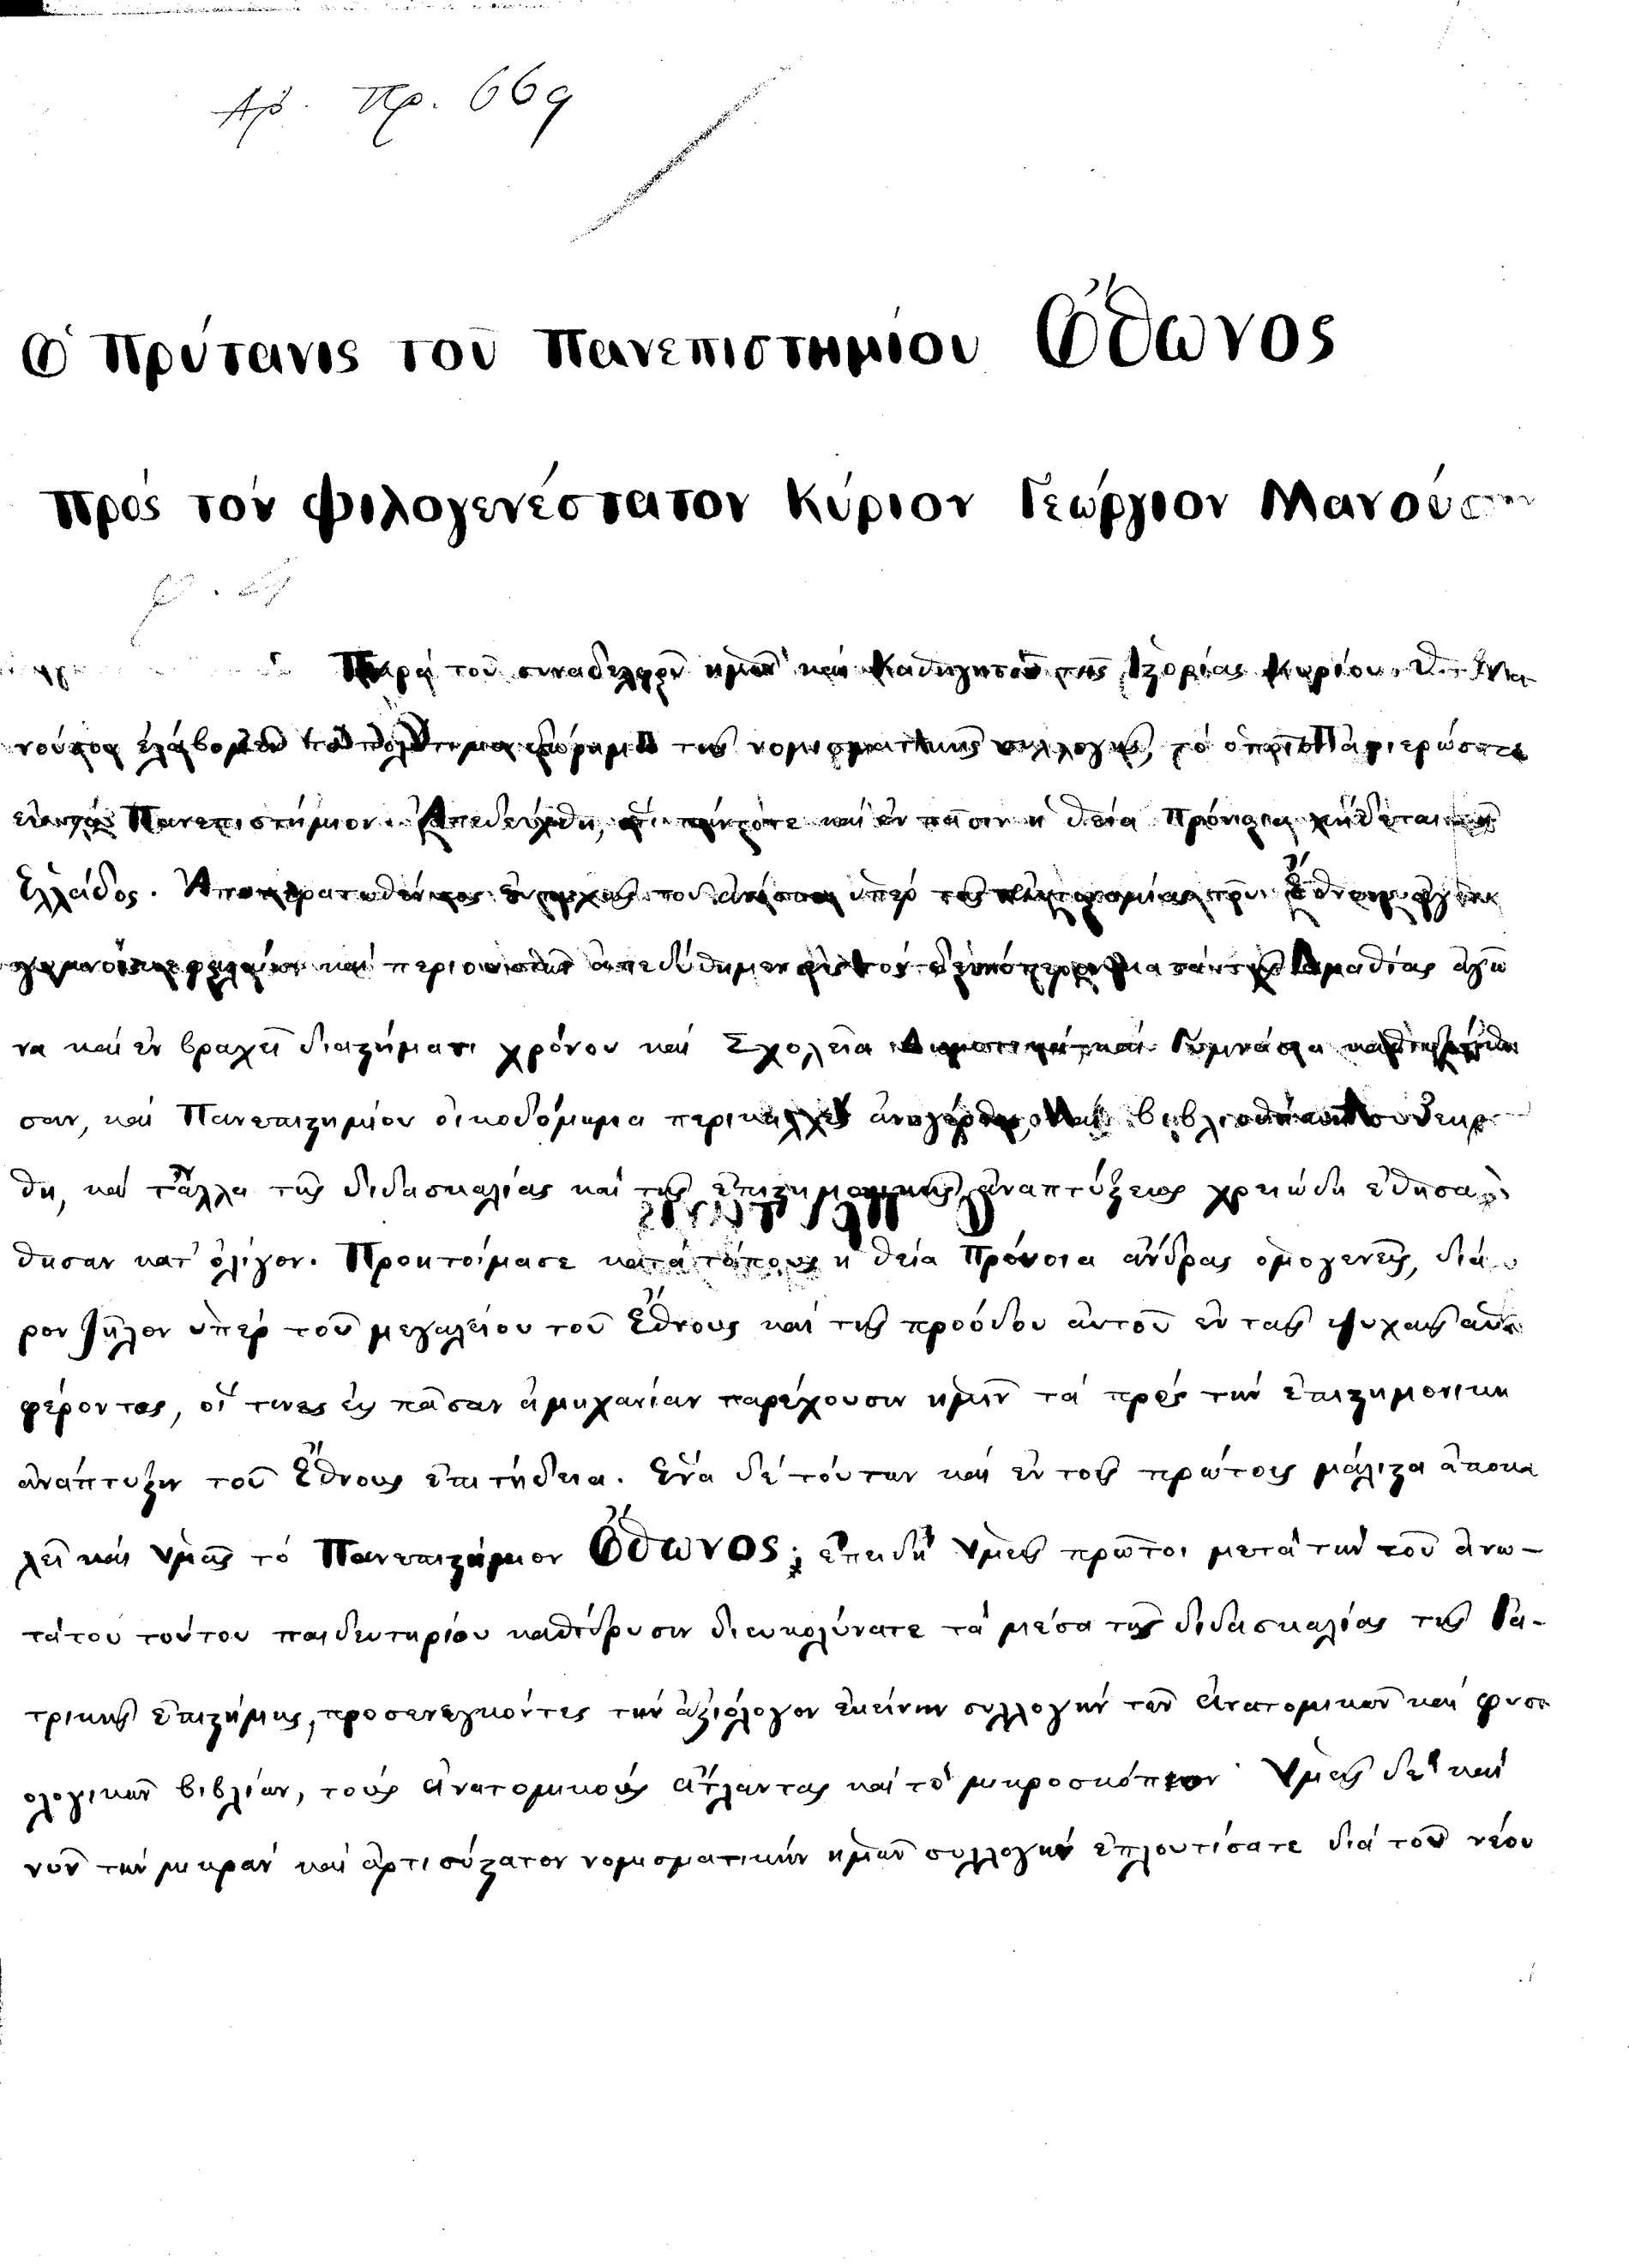 Αρ. Πρ. 669
Ὁ Πρύτανις τοῦ Πανεπιστημίου Ὄθωνος
Πρός τόν φιλογενέστατον Κύριον Γεώργιον Μανούσην
Παρά τοῦ συναδέλφου ἡμῶν καί Καθηγητοῦ τῆς Ἱστορίας Κυρίου Θ. Μα-
νούσου ἐλάβομεν τό πολύτιμον δώρημα τῆς νομισματικῆς συλλογῆς, τό ὁποῖον ἀφιερώσατε
εἰς τό Πανεπιστήμιον. Ἀπεδείχθη, ὅτι πάντοτε καί ἐν πᾶσιν ἡ θεία Πρόνοια κήδεται τῆς
Ἑλλάδος. ὑπέρ τῆς αὐτονομίας τοῦ Ἔθνους
καί περιουσιῶν ἀπεδύθημεν εἰς τόν κατά τῆς Ἀμαθίας ἀγῶ
να καί ἐν βραχεῖ διαστήματι χρόνου καί Σχολεῖα Δημοτικά, καί Γυμνάσια
σαν, καί Πανεπιστημίου οἰκοδόμημα περικαλλές ἀνηγέρθη, καί βιβλιοθήκη
θη, καί τἄλλα τῆς διδασκαλίας καί τῆς ἐπιστημονικῆς ἀναπτύξεως χρειώδη ἐθησαυ
θησαν κατ' ὀλίγον. Προητοίμασε κατά τόπους ἡ θεία Πρόνοια ἄνδρας ὁμογενεῖς, διά
ρον ζῆλον ὑπέρ τοῦ μεγαλείου τοῦ Ἔθνους καί τῆς προόδου αὐτοῦ ἐν ταῖς ψυχαῖς αὐτῶν
φέροντας, οἵ τινες εἰς πᾶσαν ἀμηχανίαν παρέχουσιν ἡμῖν τά πρός τήν ἐπιστημονικήν
ἀνάπτυξιν τοῦ Ἔθνους ἐπιτήδεια. Ἕνα δέ τούτων καί ἐν τοῖς πρώτοις μάλιστα ἀποκα
λεῖ καί Ὑμᾶς τό Πανεπιστήμιον Ὄθωνος; ἐπειδή Ὑμεῖς πρῶτοι μετά τήν τοῦ ἀνω-
τάτου τούτου παιδευτηρίου καθίδρυσιν διευκολύνατε τά μέσα τῆς διδασκαλίας τῆς Ἰα-
τρικῆς ἐπιστήμης, προσενεγκόντες τήν ἀξιόλογον ἐκείνην συλλογήν τῶν Ἀνατομικῶν καί φυσι
ολογικῶν βιβλίων, τούς Ἀνατομικούς ἄτλαντας καί τό μικροσκόπιον· Ὑμεῖς δέ καί
νῦν τήν μικράν καί ἀρτισύστατον νομισματικήν ἡμῶν συλλογήν ἐπλουτίσατε διά τοῦ νέου